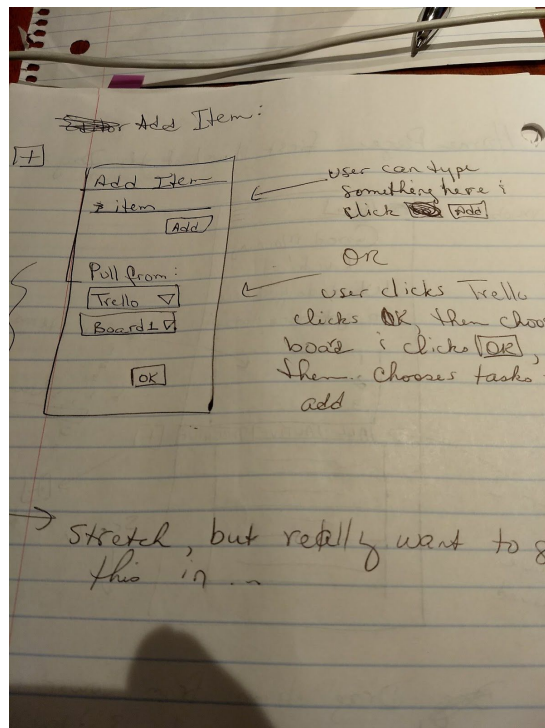 Add Item:
+
Add Item
item
Add
Pull from:
Trello
Board1
OK
user can type
something here &
click Add
OR
user clicks Trello
clicks OK, then
board & clicks OK,
then chooses tasks
add
Stretch, but really want to
this in ...